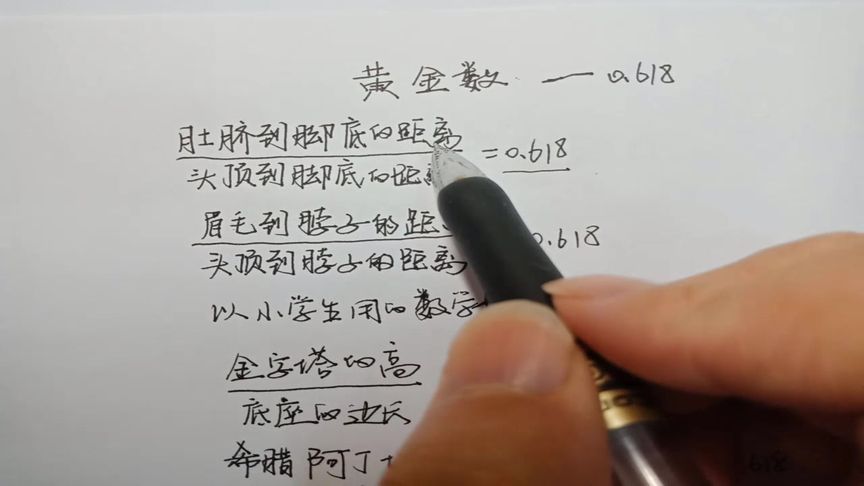 黄金数 — 0.618
肚脐到脚底的距离
= 0.618
头顶到脚底的距离
眉毛到脖子的距
0.618
头顶到脖子的距离
以小学生用的数学
金字塔的高
底座的边长
希腊阿丁
618